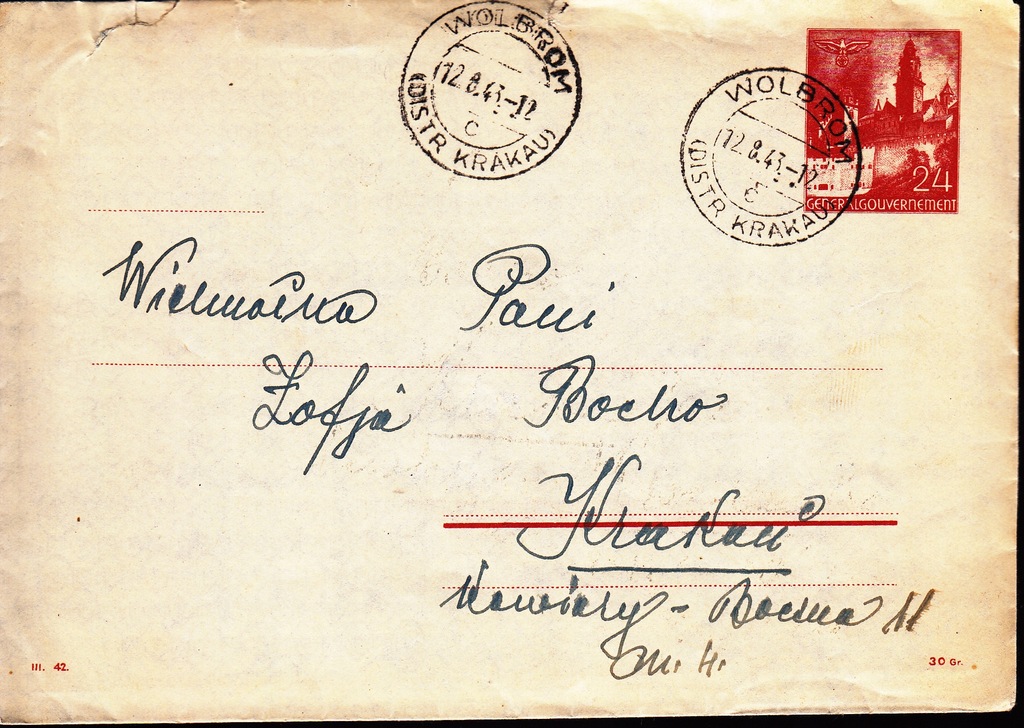 WOLBROM
12.8.43.-12
c
(DISTR. KRAKAU)
WOLBROM
12.8.43.-12
c
(DISTR. KRAKAU)
24
GENERALGOUVERNEMENT
Wielmożna Pani
Zofja Bocho
Krakau
Kawiory - Boczna 11
m. 4.
III. 42.
30 Gr.